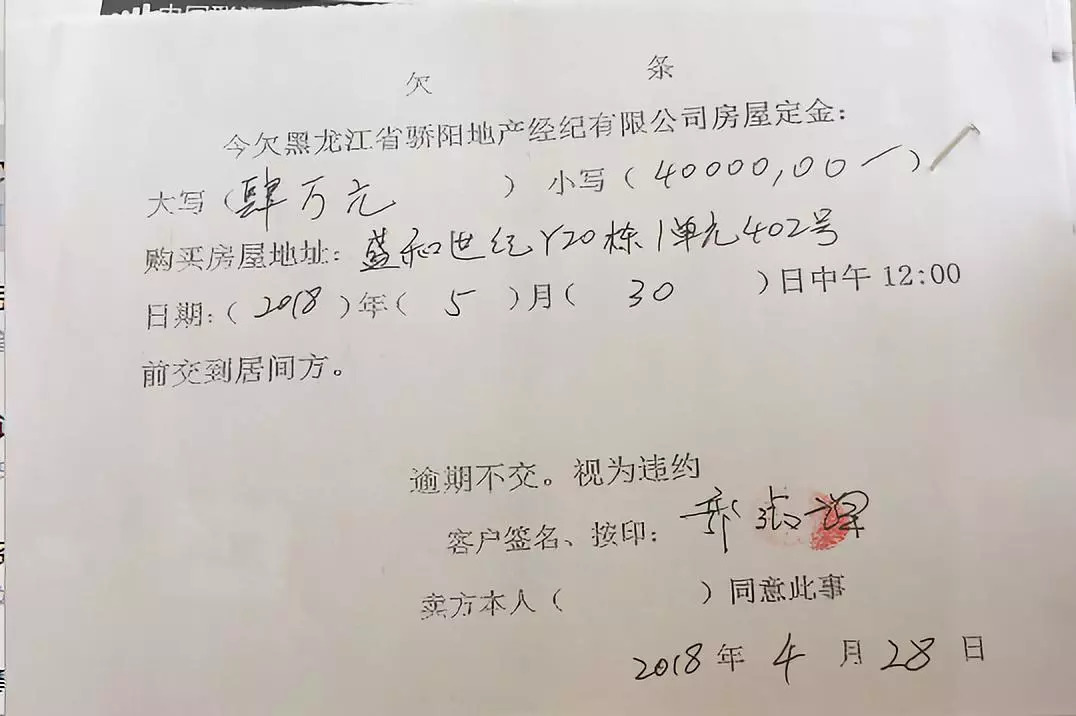 欠 条
今欠黑龙江省骄阳地产经纪有限公司房屋定金：
大写（肆万元 ）小写（40000,00）
购买房屋地址：盛和世纪Y20栋1单元402号
日期：（2018）年（5）月（30 ）日中午12:00
前交到居间方。
逾期不交。视为违约
客户签名、按印：
卖方本人（ ）同意此事
2018年4月28日